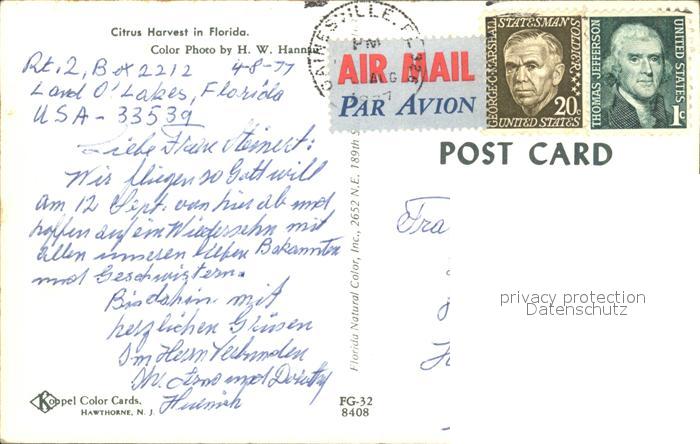 Citrus Harvest in Florida.
Color Photo by H. W. Hannau
Rt. 2, Box 2212 4-8-77
Land O'Lakes, Florida
USA - 33539
Liebe Frau Steinert:
Wir fliegen so Gott will
am 12 Sept. von hier ab und
hoffen auf ein Wiedersehn mit
allen unseren lieben Bekannten
und Geschwistern.
Bis dahin mit
herzlichen Grüsen
Im Herrn Verbunden
Ihr. und Dorothy
Koppel Color Cards.
HAWTHORNE, N. J.
FG-32
8408
Florida Natural Color, Inc., 2652 N.E. 189th S
GAINESVILLE, F
PM
AUG
AIR MAIL
PAR AVION
GEORGE C. MARSHALL
STATESMAN SOLDIER
20c
UNITED STATES
THOMAS JEFFERSON
UNITED STATES
1c
POST CARD
Fra
privacy protection
Datenschutz